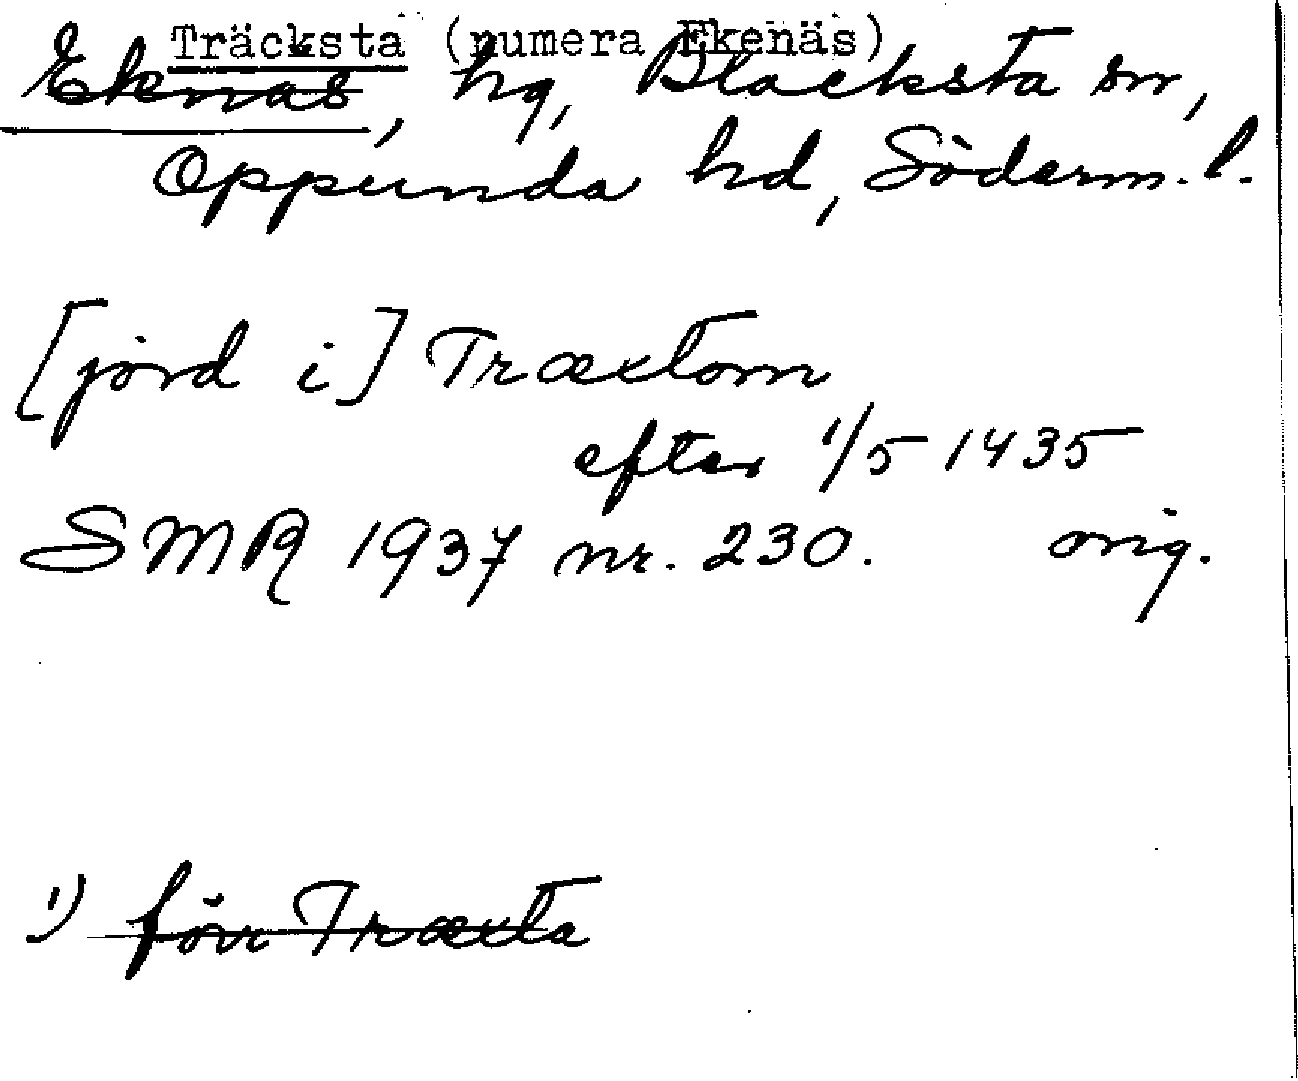 Träcksta (numera Ekenäs)
Eknäs, hg, Blacksta sn,
Oppunda hd, Söderm. l.
[jord i] Træxtom
efter 1/5 1435
SMR 1937 nr. 230. orig.
1) förr Træxta